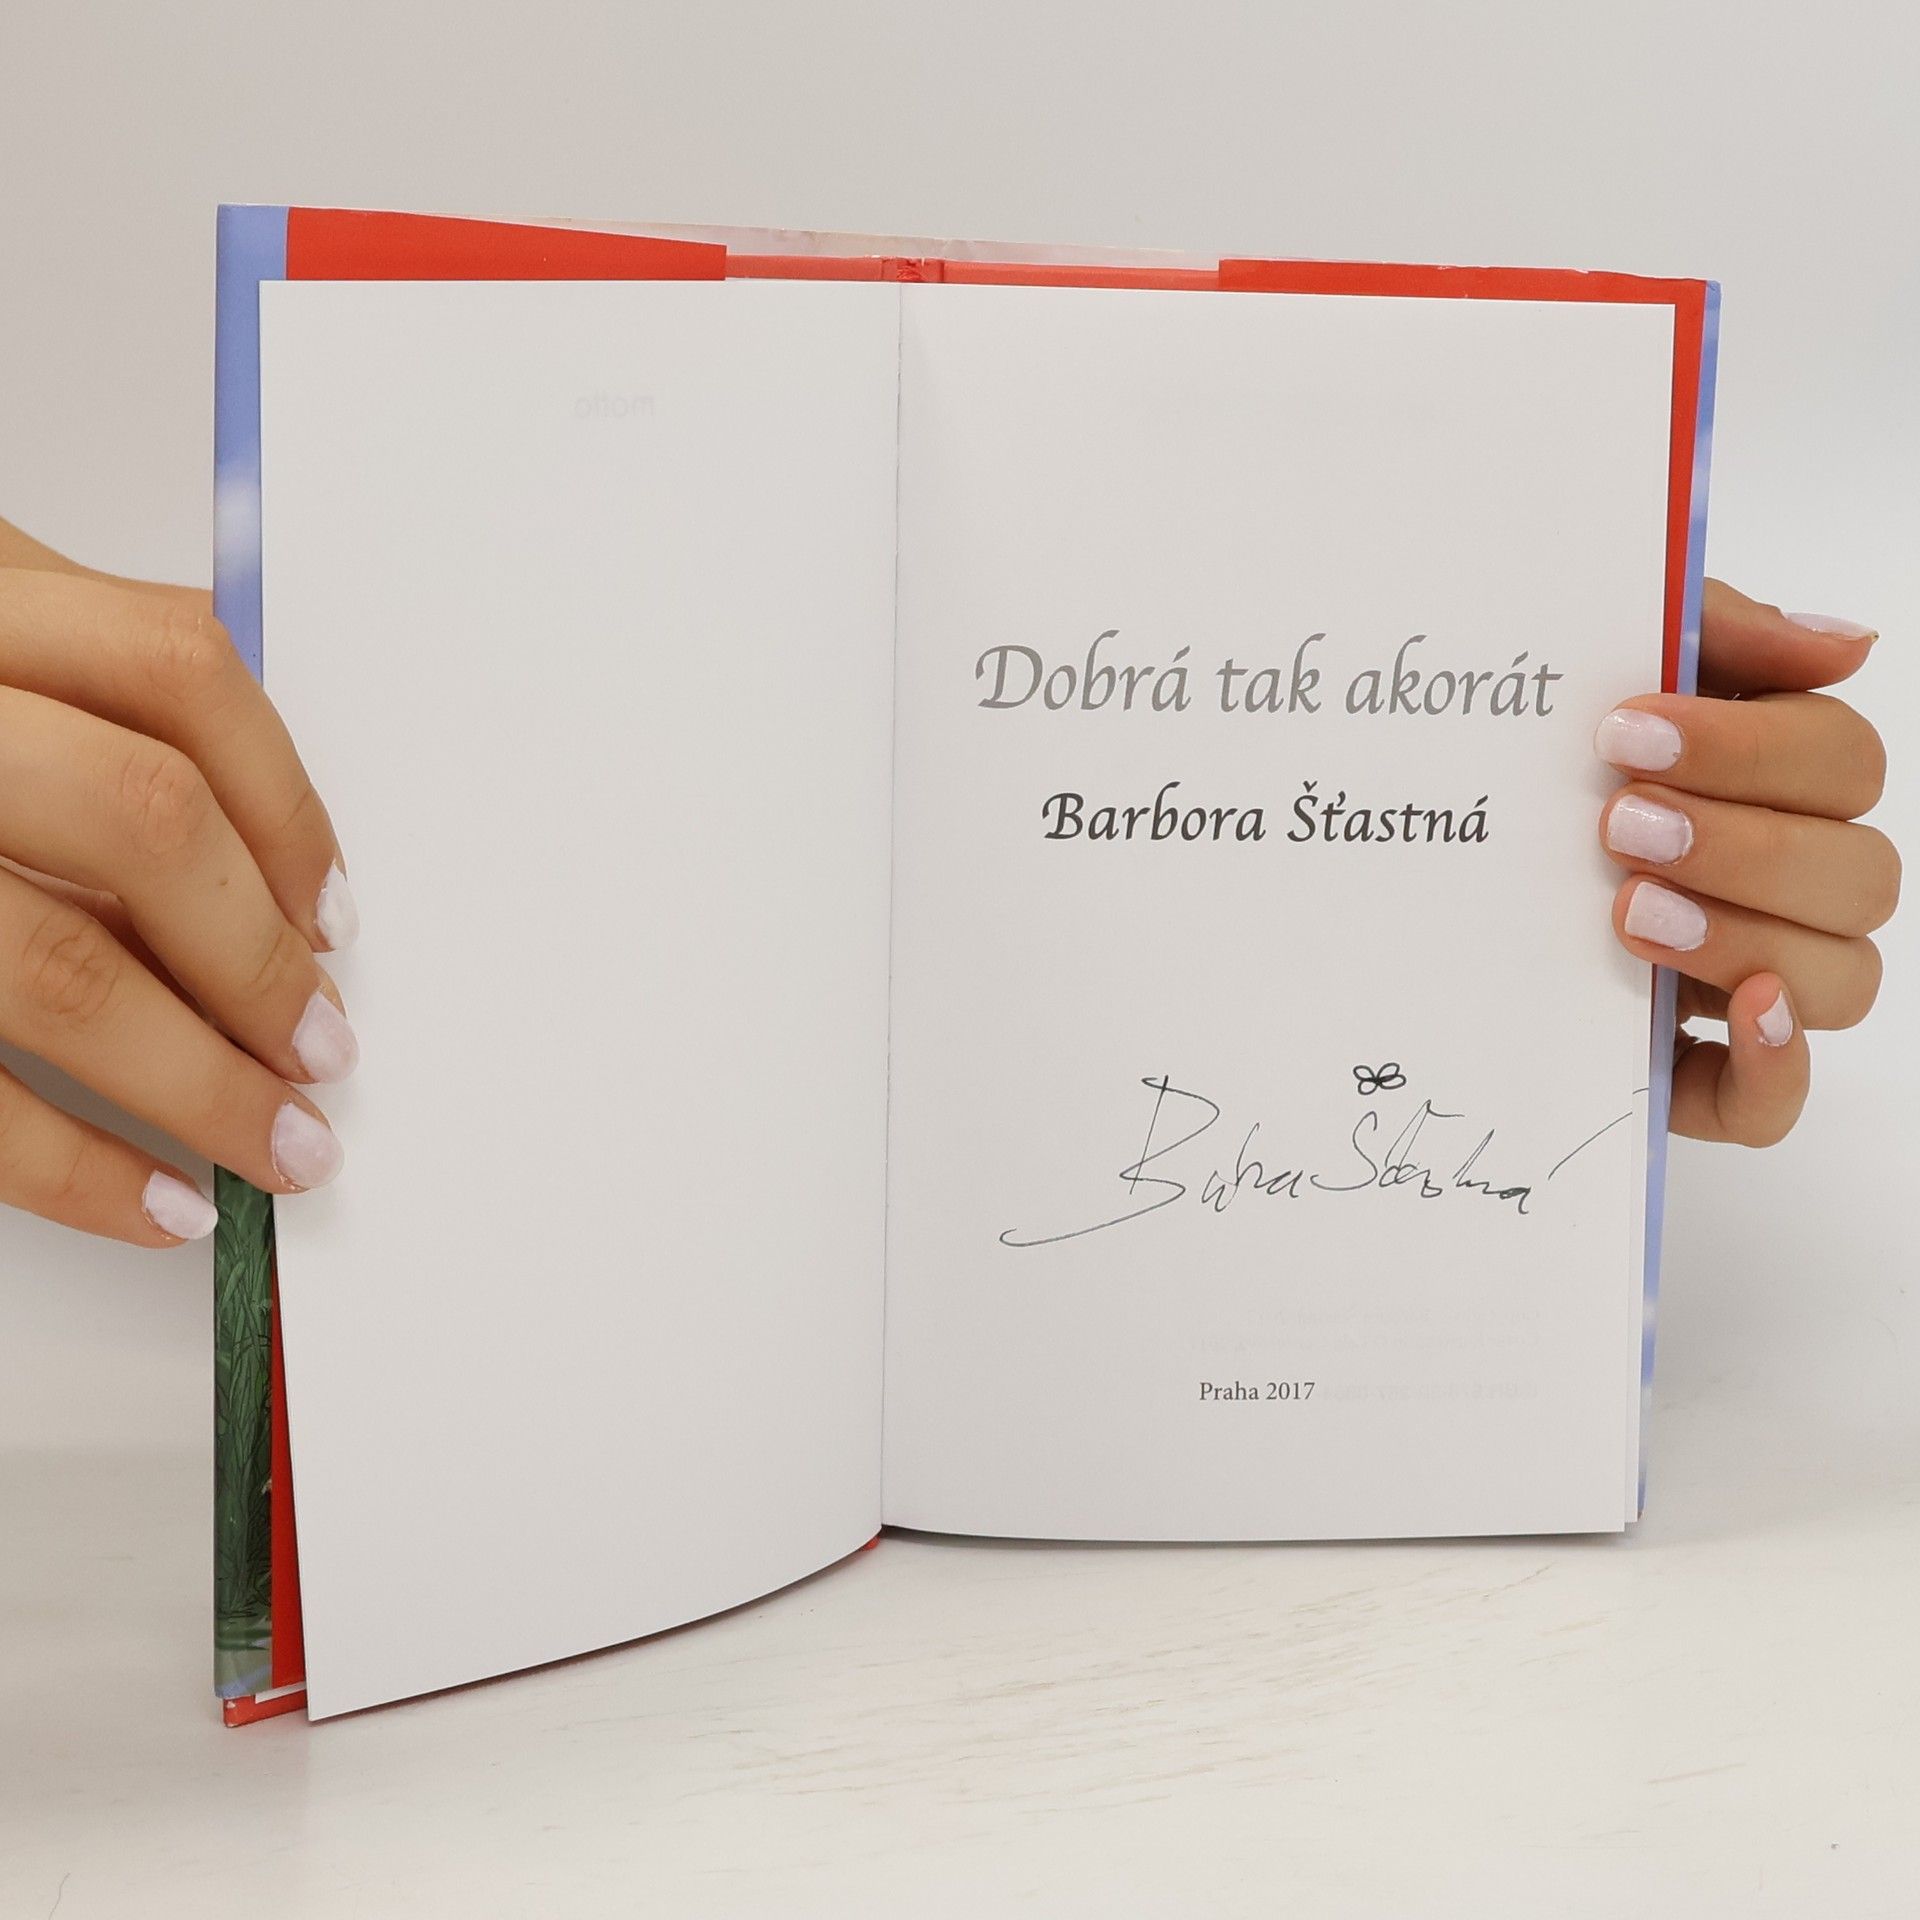 motto
Dobrá tak akorát
Barbora Šťastná
Bára Šťastná
Praha 2017